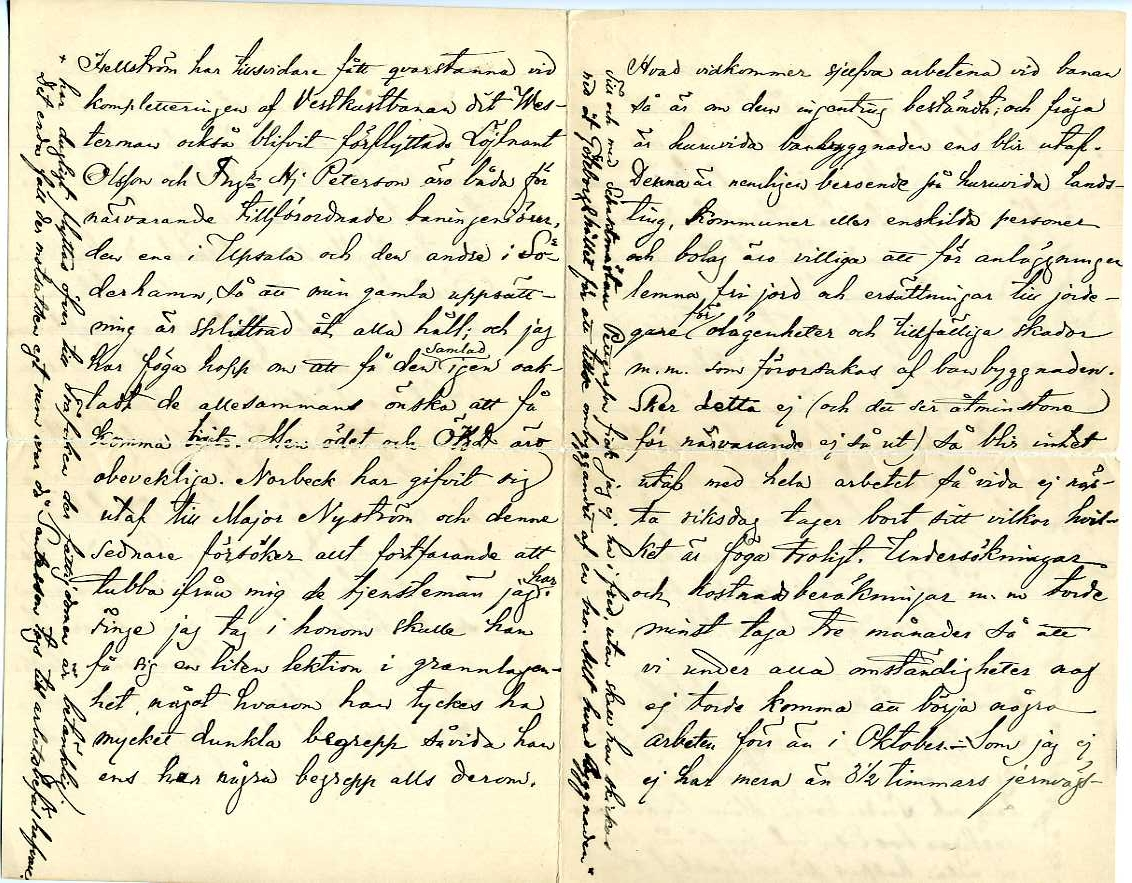 Hellström har tillsvidare fått qvarstanna vid
kompletteringen af Vestkustbanan dit Wes-
terman också blifvit förflyttad. Löjtnant
Olsson och Ing. Hj Peterson äro båda för
närvarande tillförordnade baningeniörer,
den ene i Upsala och den andre i Sö-
derhamn, så att min gamla uppsätt-
ning är splittrad åt alla håll; och jag
har föga hopp om att få den samlad igen oak-
tadt de allesammans önska att få
komma hit. Men ödet och äro
obevekliga. Norbeck har gifvit sig
utaf till Major Nyström och denne
sednare försöker allt fortfarande att
tubba ifrån mig de tjenstemän jag har.
Finge jag tag i honom skulle han
få sig en liten lektion i grannlagen-
het, något hvarom han tyckes ha
mycket dunkla begrepp såvida han
ens har några begrepp alls derom.
Hvad vidkommer sjelfva arbetena vid banan
så är om dem ingenting bestämdt; och fråga
är huruvida banbyggnaden ens blir utaf.
Denna är nemligen beroende på huruvida lands-
ting, kommuner eller enskilda personer
och bolag äro villiga att för anläggningen
lemna fri jord och ersättningar till jorde-
gare för olägenheter och tillfälliga skador
m.m. som förorsakas af banbyggnaden.
Sker detta ej (och det ser åtminstone
för närvarande ej så ut) så blir intet
utaf med hela arbetet så vida ej näs-
ta riksdag tager bort sitt vilkor hvil-
ket är föga troligt. Undersökningar
och kostnadsberäkningar m.m torde
minst taga tre månader så att
vi under alla omständigheter nog
ej torde komma att börja några
arbeten förr än i Oktober. – Som jag ej
ej har mera än 3½ timmars jernvägs-
Till och med fick jag ej ha i fred, utan skall han skickas
ned åt Göteborgshållet för att tillse ombyggandet af en bro. Allt hvad Byggnaden
har dugligt flyttas öfver till Trafiken der är betänklig.
Det enda